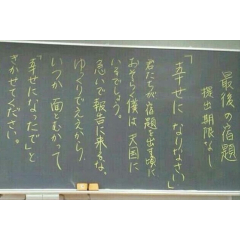 最後の宿題
提出期限なし
「幸せになりなさい」
君たちが宿題を出す頃に
おそらく僕は天国に
いるでしょう。
急いで報告に来るな。
ゆっくりでええから
いつか面とむかって
「幸せになったで」と
きかせてください。